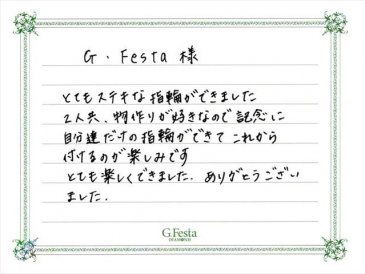 G.Festa 様
とてもステキな指輪ができました
2人共、物作りが好きなので記念に
自分達だけの指輪ができて これから
付けるのが楽しみです
とても楽しくできました. ありがとうござい
ました.
G.Festa
DIAMOND